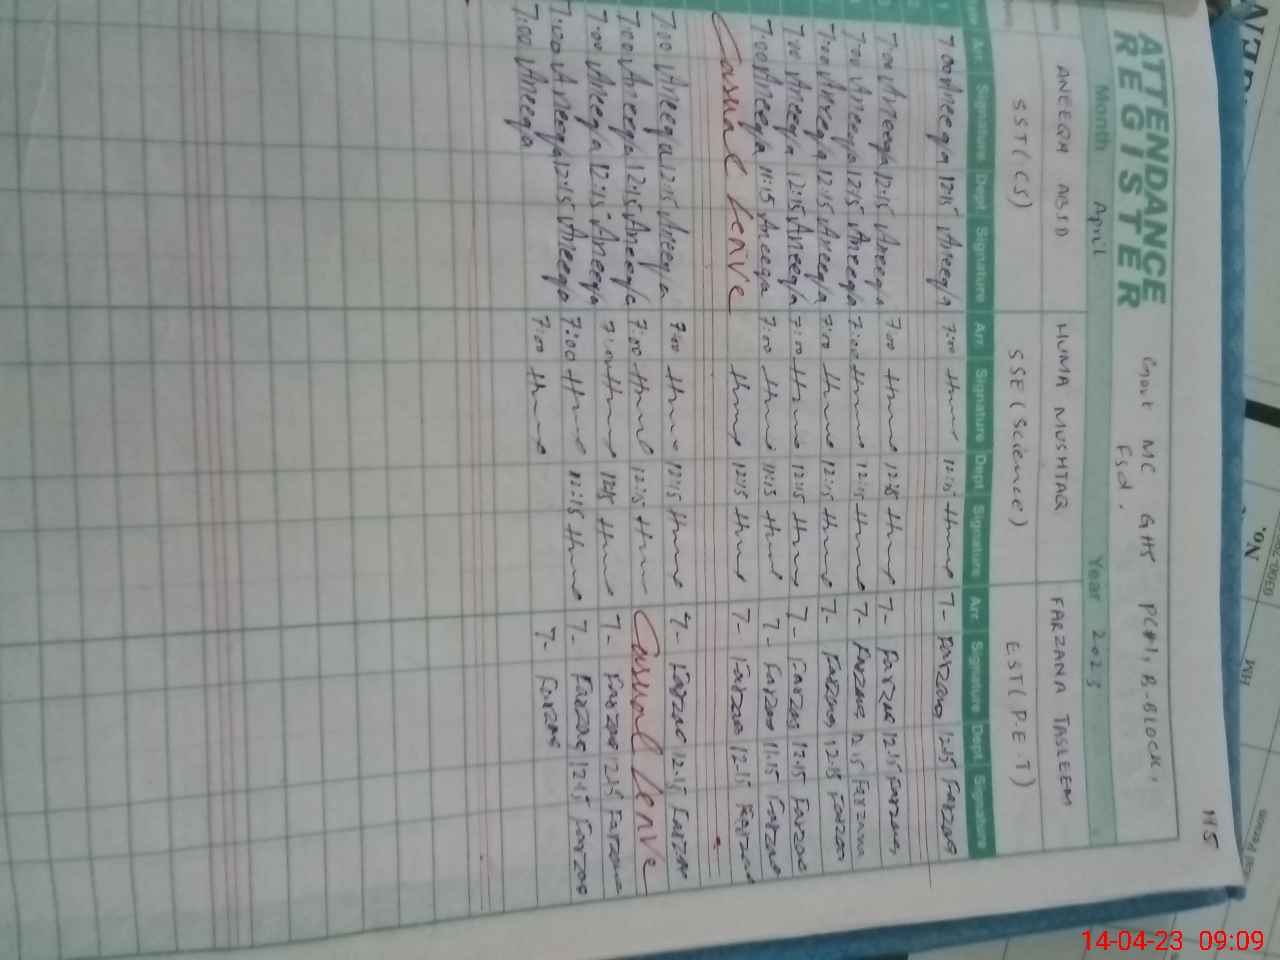 115
ATTENDANCE
REGISTER
Govt MC GHS PC#1, B-BLOCK,
Fsd.
Month April Year 2023
ANEEQA ABID HUMA MUSHTAQ FARZANA TASLEEM
SST(CS) SSE(Science) EST(P.E.T)
Arr. Signature Dept. Signature Arr. Signature Dept. Signature Arr. Signature Dept. Signature
1 7:00 Aneeqa 12:15 Aneeqa 7:00 Huma 12:15 Huma 7- Farzana 12:15 Farzana
2
7:00 Aneeqa 12:15 Aneeqa 7:00 Huma 12:15 Huma 7- Farzana 12:15 Farzana
7:00 Aneeqa 12:15 Aneeqa 7:00 Huma 12:15 Huma 7- Farzana 12:15 Farzana
7:00 Aneeqa 12:15 Aneeqa 7:00 Huma 12:15 Huma 7- Farzana 12:15 Farzana
7:00 Aneeqa 12:15 Aneeqa 7:00 Huma 12:15 Huma 7- Farzana 12:15 Farzana
7:00 Aneeqa 11:15 Aneeqa 7:00 Huma 11:15 Huma 7- Farzana 11:15 Farzana
Casual Leave Huma 12:15 Huma 7- Farzana 12:15 Farzana
7:00 Aneeqa 12:15 Aneeqa 7:00 Huma 12:15 Huma 7- Farzana 12:15 Farzana
7:00 Aneeqa 12:15 Aneeqa 7:00 Huma 12:15 Huma Casual Leave
7:00 Aneeqa 12:15 Aneeqa 7:00 Huma 12:15 Huma 7- Farzana 12:15 Farzana
7:00 Aneeqa 12:15 Aneeqa 7:00 Huma 12:15 Huma 7- Farzana 12:15 Farzana
7:00 Aneeqa 7:00 Huma 7- Farzana
No.
14-04-23 09:09